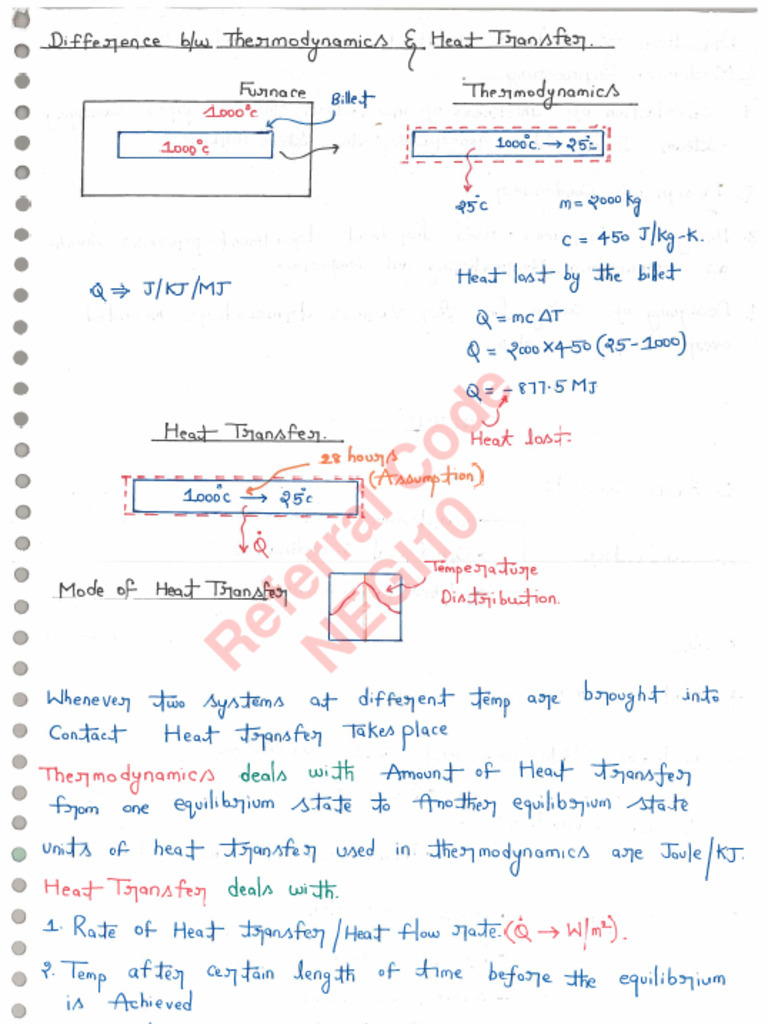 Difference b/w Thermodynamics & Heat Transfer.
Furnace
1000°c
Billet
1000°c
Thermodynamics
1000°c. → 25°c
25°c
m = 2000 kg
c = 450 J/kg-K.
Heat lost by the billet
Q ⇒ J/KJ/MJ
Q = mc ΔT
Q = 2000 x 450 (25-1000)
Q = - 877.5 MJ
Heat lost.
Heat Transfer.
28 hours
(Assumption)
1000°c → 25°c
Q̇
Mode of Heat Transfer
Temperature
Distribution.
Referral Code
NEGI10
Whenever two systems at different temp are brought into
Contact Heat transfer Takes place
Thermodynamics deals with Amount of Heat transfer
from one equilibrium state to Another equilibrium state
units of heat transfer used in thermodynamics are Joule/KJ.
Heat Transfer deals with.
1. Rate of Heat transfer/Heat flow rate. (Q̇ → W/m²).
2. Temp after certain length of time before the equilibrium
is Achieved